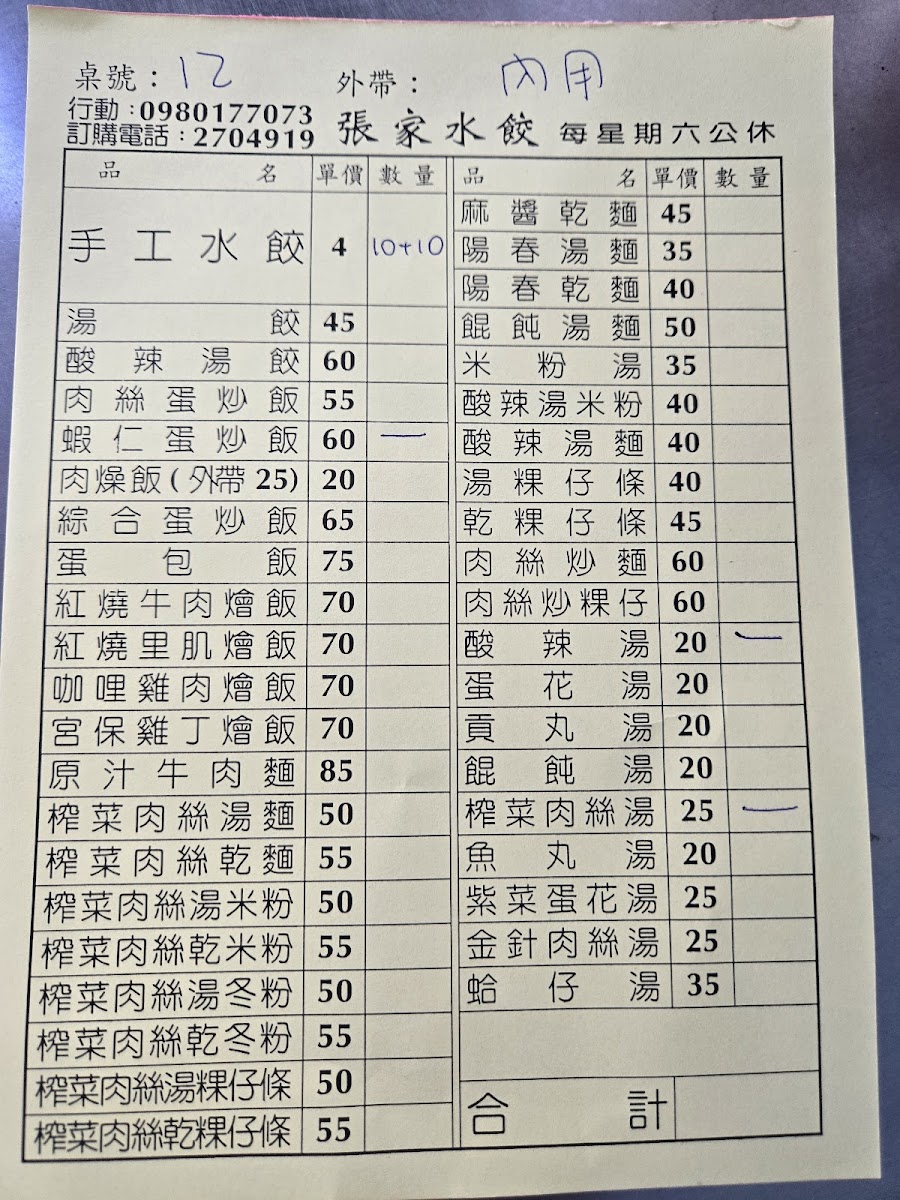 桌號：12 外帶： 內用
行動：0980177073
訂購電話：2704919 張家水餃 每星期六公休
品名 單價 數量
手工水餃 4 10+10
湯餃 45
酸辣湯餃 60
肉絲蛋炒飯 55
蝦仁蛋炒飯 60 一
肉燥飯(外帶25) 20
綜合蛋炒飯 65
蛋包飯 75
紅燒牛肉燴飯 70
紅燒里肌燴飯 70
咖哩雞肉燴飯 70
宮保雞丁燴飯 70
原汁牛肉麵 85
榨菜肉絲湯麵 50
榨菜肉絲乾麵 55
榨菜肉絲湯米粉 50
榨菜肉絲乾米粉 55
榨菜肉絲湯冬粉 50
榨菜肉絲乾冬粉 55
榨菜肉絲湯粿仔條 50
榨菜肉絲乾粿仔條 55
品名 單價 數量
麻醬乾麵 45
陽春湯麵 35
陽春乾麵 40
餛飩湯麵 50
米粉湯 35
酸辣湯米粉 40
酸辣湯麵 40
湯粿仔條 40
乾粿仔條 45
肉絲炒麵 60
肉絲炒粿仔 60
酸辣湯 20 一
蛋花湯 20
貢丸湯 20
餛飩湯 20
榨菜肉絲湯 25 一
魚丸湯 20
紫菜蛋花湯 25
金針肉絲湯 25
蛤仔湯 35
合計